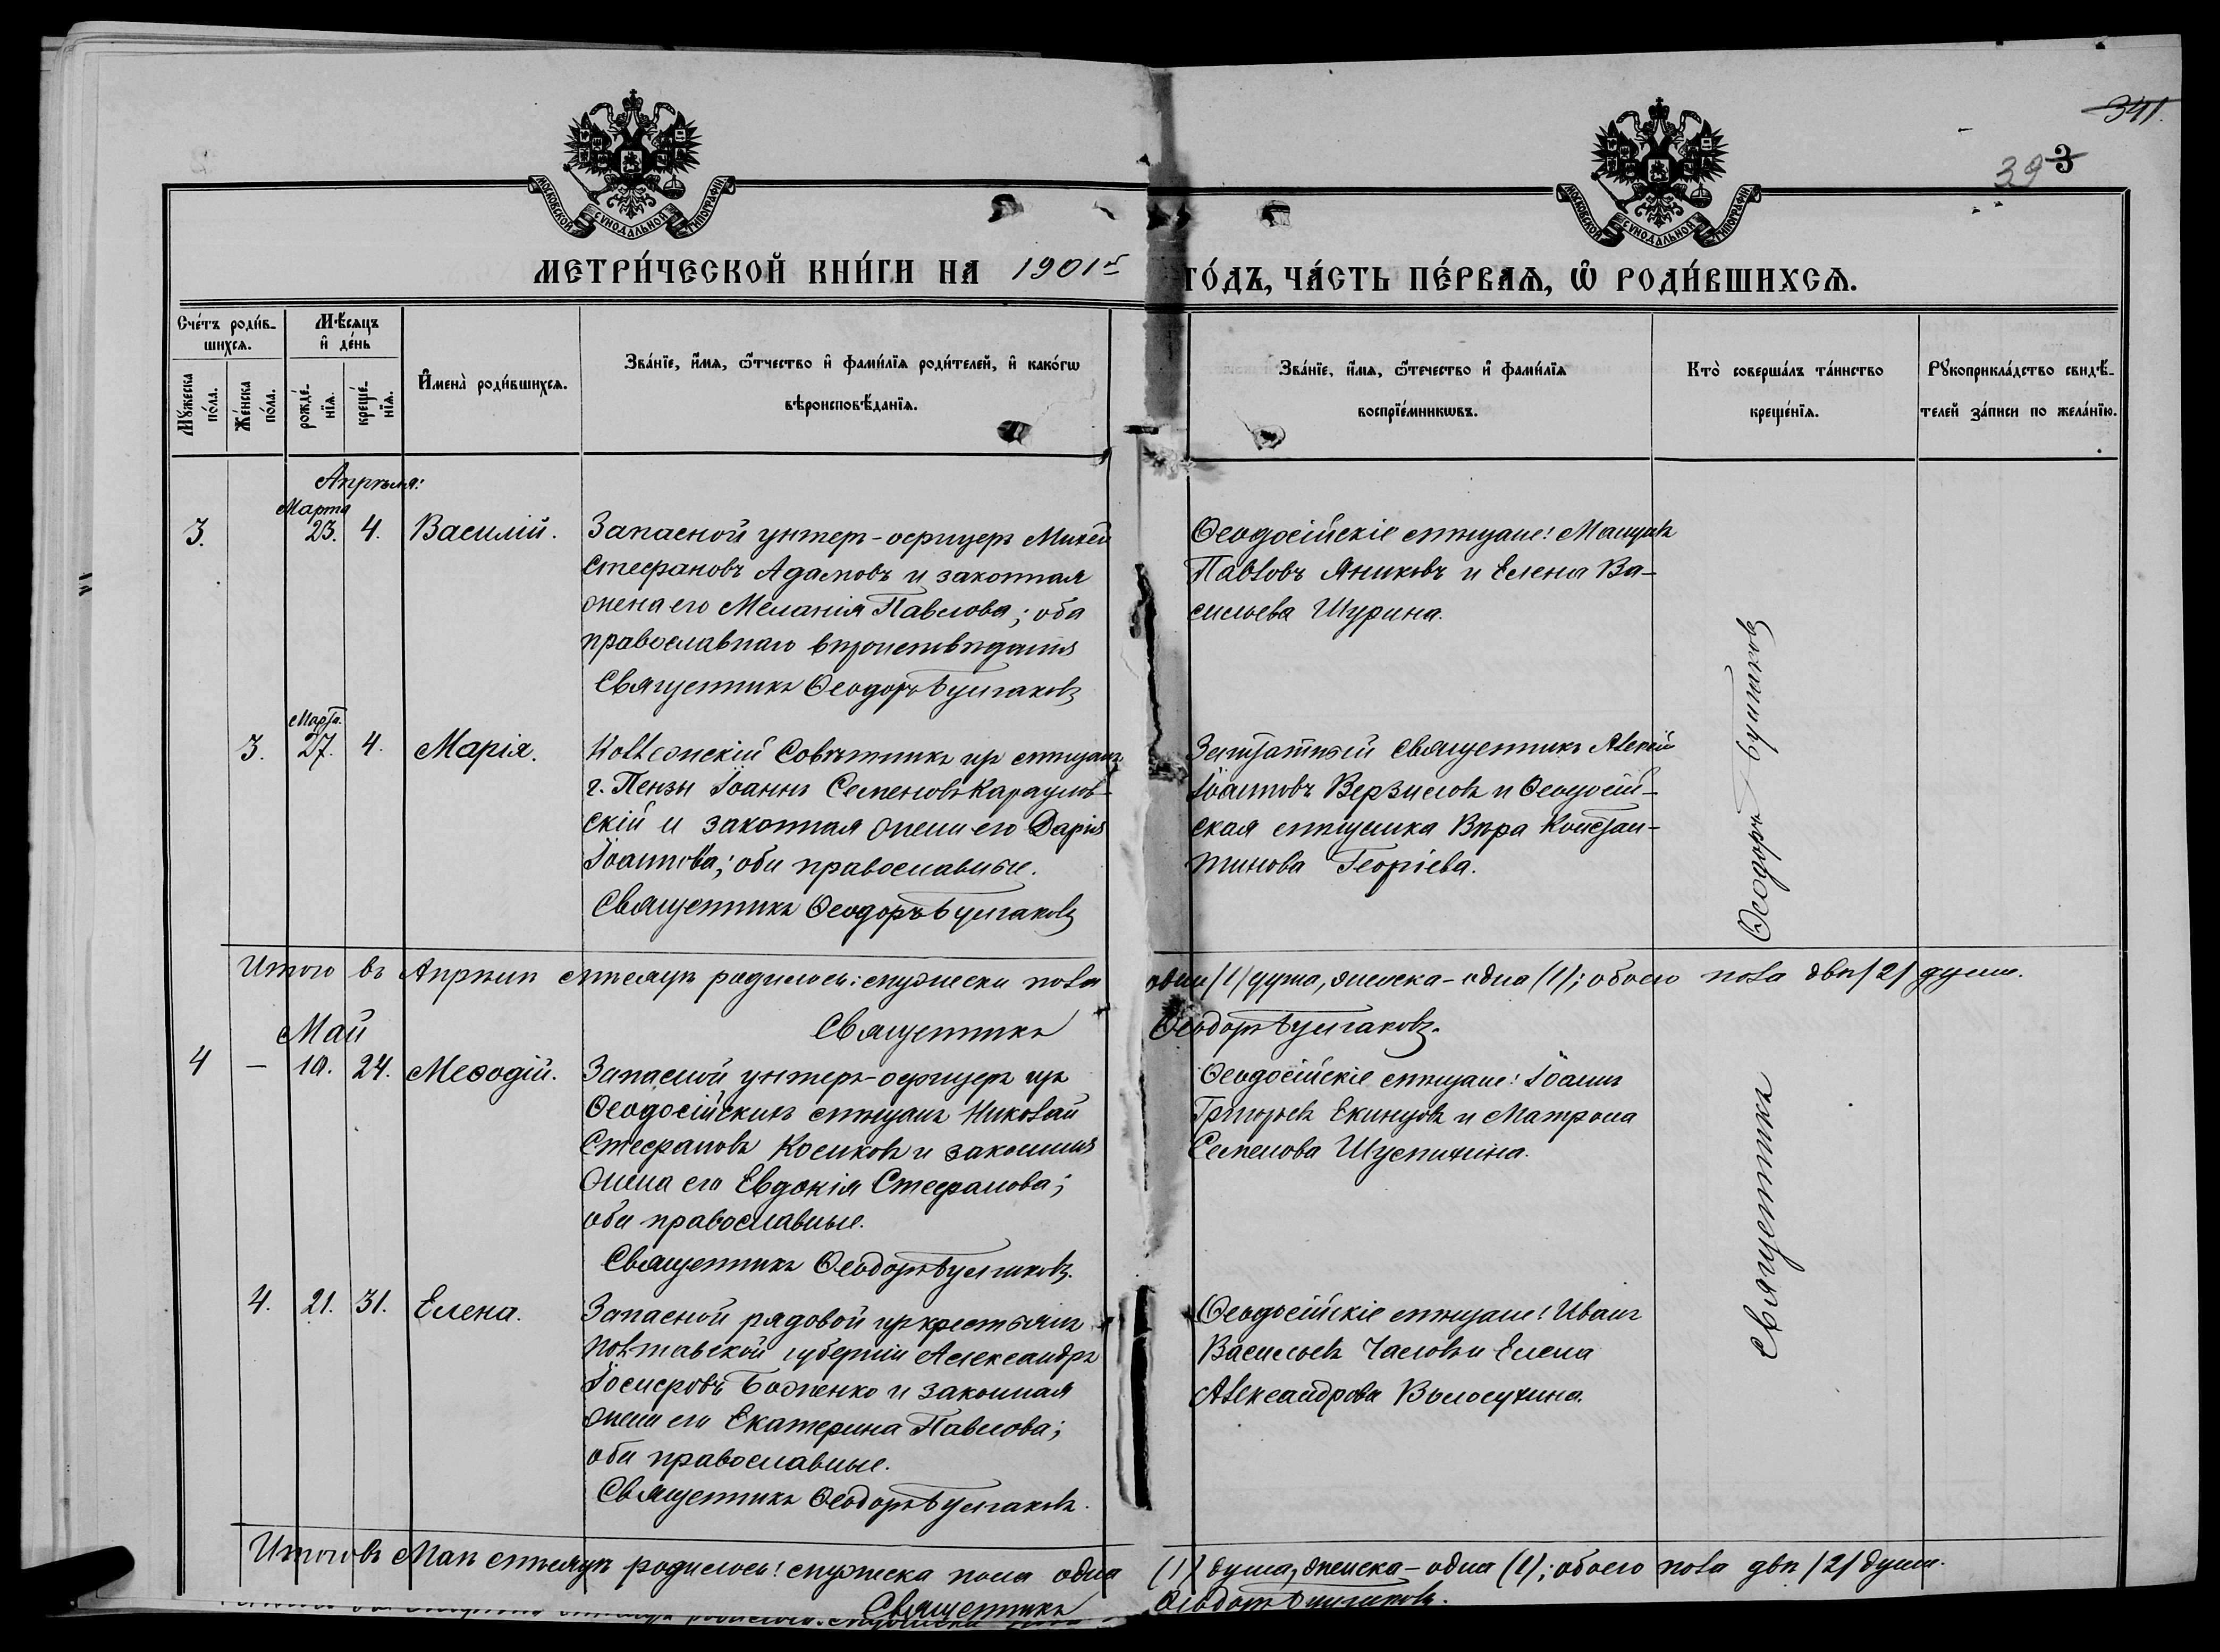 341.
39 3
МОСКОВСКОЙ СѴНОДАЛЬНОЙ ТИПОГРАФІИ
МОСКОВСКОЙ СѴНОДАЛЬНОЙ ТИПОГРАФІИ
МЕТРИ́ЧЕСКОЙ КНИ́ГИ НА 1901й ГО́ДЪ, ЧА́СТЬ ПЕ́РВАѦ, Ѡ҆ РОДИ́ВШИХСѦ.
Сче́тъ роди́в-
шихсѧ.
Мꙋжеска
по́ла.
Же́нска
по́ла.
Мѣ́сѧцъ
и҆ де́нь
рожде́-
нїѧ.
креще́-
нїѧ.
И҆мена̀ роди́вшихсѧ.
Зва́нїе, и҆́мѧ, ѻ҆́тчество и҆ фами́лїѧ роди́телей, и҆ како́гѡ
вѣроисповѣ́данїѧ.
Зва́нїе, и҆́мѧ, ѻ҆те́чество и҆ фами́лїѧ
воспрїе́мникѡвъ.
Кто̀ соверша́лъ та́инство
креще́нїѧ.
Рꙋкоприкла́дство свидѣ́-
телей за́писи по жела́нїю.
Апрѣля:
Марта
3. 23. 4. Василій.
Запасной унтеръ-офицеръ Михей
Стефановъ Адамовъ и законная
жена его Меланія Павлова; оба
православнаго вѣроисповѣданія
Священникъ Ѳеодоръ Булгаковъ
Ѳеодосійскіе мѣщане:
Павловъ Яниковъ и Елена Ва-
сильева Шурина.
Марта.
3. 27. 4. Марія.
Коллежскій Совѣтникъ изъ мѣщанъ
г. Пензы Іоаннъ Семеновъ Караулов-
скій и законная жена его Дарія
Іоаннова; оба православные.
Священникъ Ѳеодоръ Булгаковъ
Заштатный священникъ Алексій
Іоанновъ Верзиловъ и Ѳеодосій-
ская мѣщанка Вѣра Констан-
тинова Георгіева.
Итого въ Апрѣлѣ мѣсяцѣ родилось: мужеска пола одна /1/ душа, женска - одна (1); обоего пола двѣ /2/ души.
Священникъ Ѳеодоръ Булгаковъ.
Май
4 — 10. 24. Меѳодій.
Запасной унтеръ-офицеръ изъ
Ѳеодосійскихъ мѣщанъ Николай
Стефановъ Косиковъ и законная
жена его Евдокія Стефанова;
оба православные.
Священникъ Ѳеодоръ Булгаковъ.
Ѳеодосійскіе мѣщане: Іоаннъ
Григорьевъ Екинцовъ и Матрона
Семенова Шуспихина.
4. 21. 31. Елена.
Запасной рядовой изъ крестьянъ
Полтавской губерніи Александръ
Іосифовъ Боженко и законная
жена его Екатерина Павлова;
оба православные.
Священникъ Ѳеодоръ Булгаковъ.
Ѳеодосійскіе мѣщане: Иванъ
Васильевъ Часовъ и Елена
Александрова Вылосухина.
Священникъ Ѳеодоръ Булгаковъ
Итого въ Маѣ мѣсяцѣ родилось: мужеска пола одна (1) душа, женска - одна (1); обоего пола двѣ /2/ души.
Священникъ Ѳеодоръ Булгаковъ.